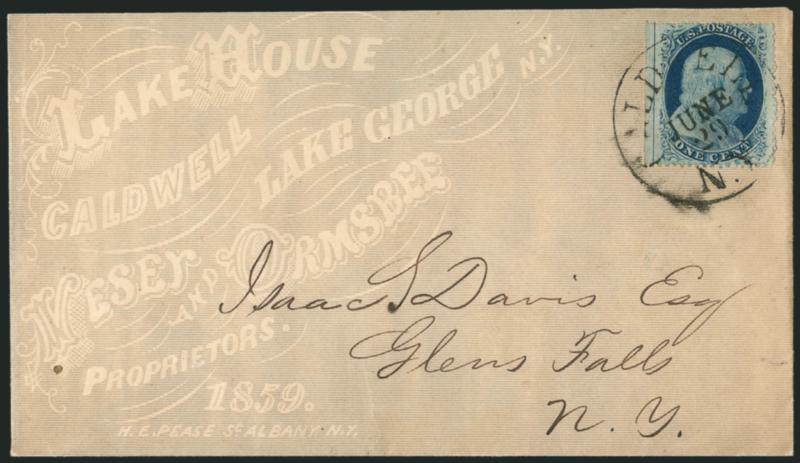 LAKE HOUSE
CALDWELL
LAKE GEORGE N.Y.
VESEY AND ORMSBEE
PROPRIETORS.
1859.
H.E. PEASE Sc ALBANY. N.Y.
U.S. POSTAGE
ONE CENT
CALDWELL
JUNE
29
N.Y.
Isaac S Davis Esq
Glens Falls
N. Y.